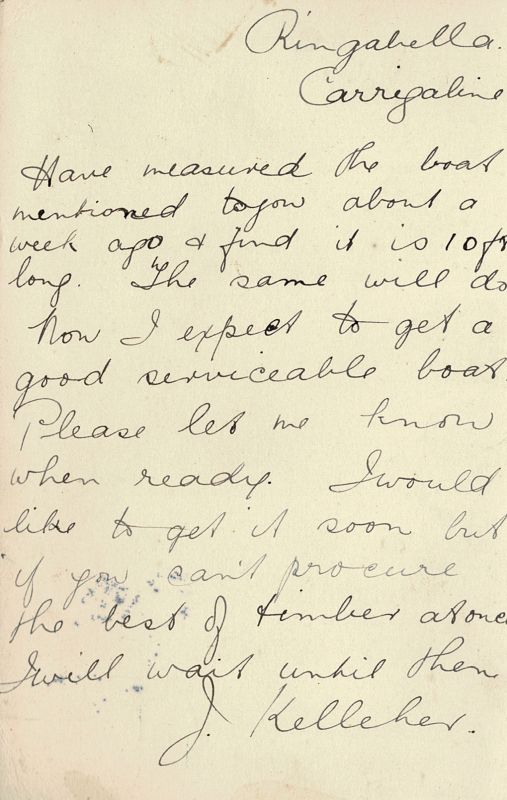 Ringabella.
Carrigaline
Have measured the boat
mentioned to you about a
week ago & find it is 10 ft
long. The same will do
Now I expect to get a
good serviceable boat.
Please let me know
when ready. I would
like to get it soon but
if you can't procure
the best of timber at once
I will wait until then
J. Kelleher.